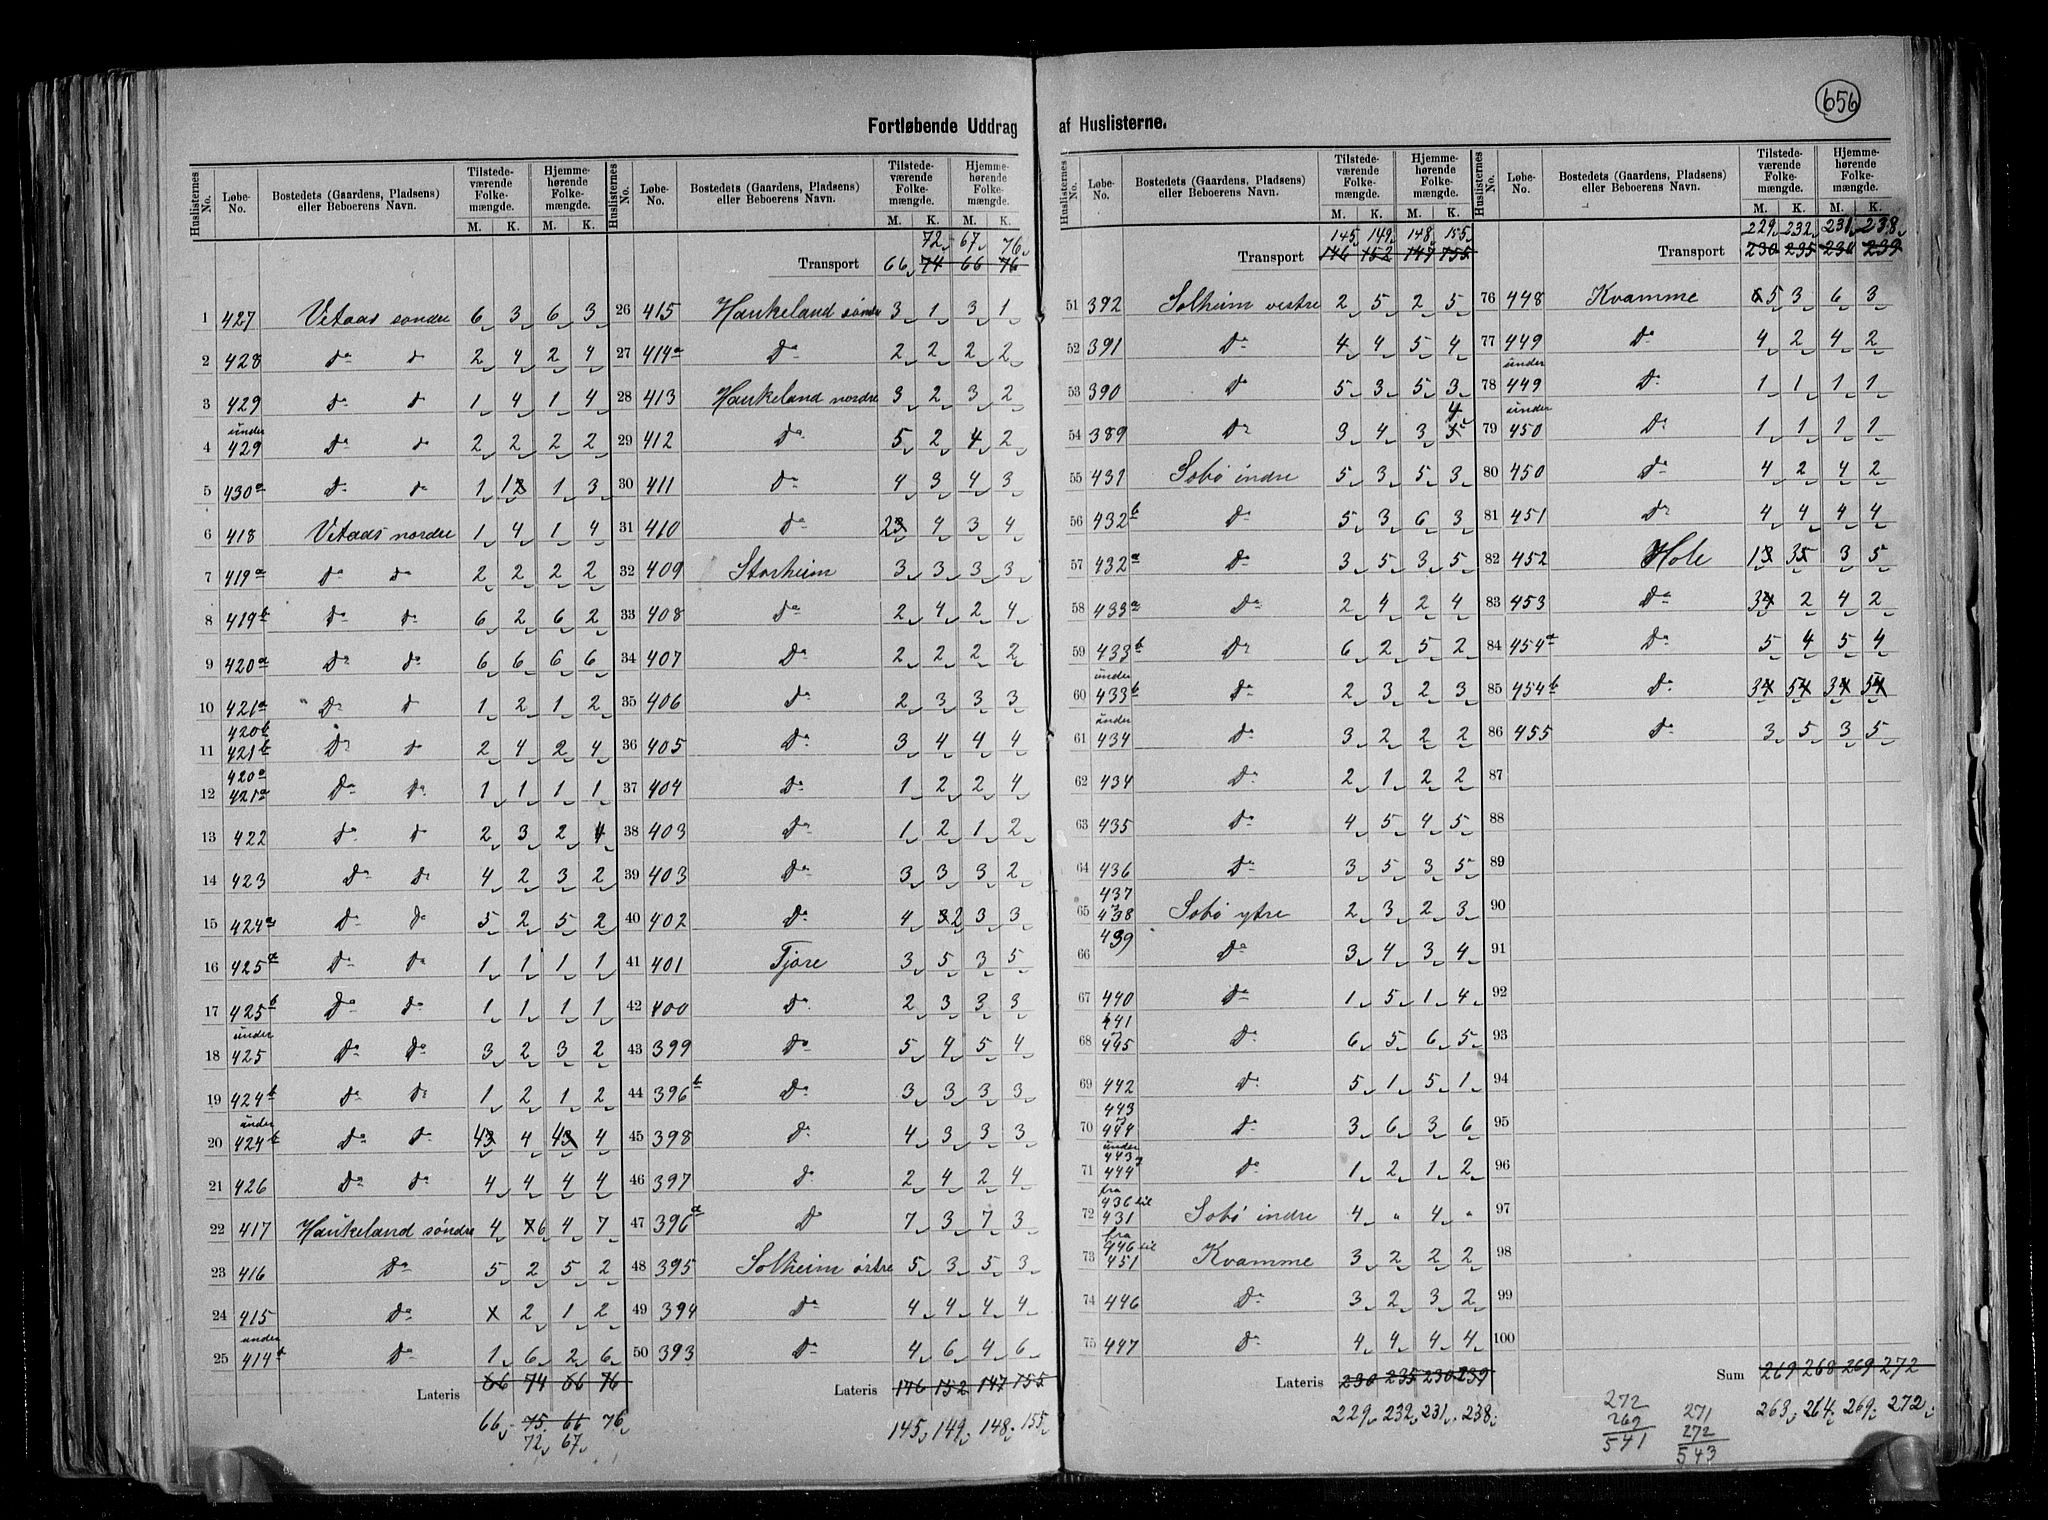 656
Fortløbende Uddrag af Huslisterne.
Huslisternes No. Løbe-No. Bostedets (Gaardens, Pladsens) eller Beboerens Navn. Tilstedeværende Folkemængde. M. K. Hjemmehørende Folkemængde. M. K.
1 427 Vetaas søndre 6 3 6 3
2 428 do do 2 4 2 4
3 429 do do 1 4 1 4
4 under 429 do do 2 2 2 2
5 430a do do 1 1 1 3
6 418 Vetaas nordre 1 4 1 4
7 419a do do 2 2 2 2
8 419b do do 6 2 6 2
9 420a do do 6 6 6 6
10 421a do do 1 2 1 2
11 420b 421b do do 2 4 2 4
12 420a 421a do do 1 1 1 1
13 422 do do 2 3 2 4
14 423 do do 4 2 3 2
15 424a do do 5 2 5 2
16 425a do do 1 1 1 1
17 425b do do 1 1 1 1
18 under 425 do do 3 2 3 2
19 424b do do 1 2 1 2
20 under 424b do do 4 4 4 4
21 426 do do 4 4 4 4
22 417 Haukeland søndre 4 6 4 7
23 416 do 5 2 5 2
24 415 do x 2 1 2
25 under 414a do 1 6 2 6
Lateris 66 74 66 76
66 75 66 76
72 67
Huslisternes No. Løbe-No. Bostedets (Gaardens, Pladsens) eller Beboerens Navn. Tilstedeværende Folkemængde. M. K. Hjemmehørende Folkemængde. M. K.
72 67 76
Transport 66 74 66 76
26 415 Haukeland søndre 3 1 3 1
27 414a do 2 2 2 2
28 413 Haukeland nordre 3 2 3 2
29 412 do 5 2 4 2
30 411 do 4 3 4 3
31 410 do 2 4 3 4
32 409 Storheim 3 3 3 3
33 408 do 2 4 2 4
34 407 do 2 2 2 2
35 406 do 2 3 3 3
36 405 do 3 4 4 4
37 404 do 1 2 2 4
38 403 do 1 2 1 2
39 403 do 3 3 3 2
40 402 do 4 2 3 3
41 401 Tjore 3 5 3 5
42 400 do 2 3 3 3
43 399 do 5 4 5 4
44 396b do 3 3 3 3
45 398 do 4 3 3 3
46 397 do 2 4 2 4
47 396a do 7 3 7 3
48 395 Solheim østre 5 3 5 3
49 394 do 4 4 4 4
50 393 do 4 6 4 6
Lateris 146 152 147 155
145 149 148 155
Huslisternes No. Løbe-No. Bostedets (Gaardens, Pladsens) eller Beboerens Navn. Tilstedeværende Folkemængde. M. K. Hjemmehørende Folkemængde. M. K.
145 149 148 155
Transport 146 152 147 155
51 392 Solheim vestre 2 5 2 5
52 391 do 4 4 5 4
53 390 do 5 3 5 3
54 389 do 3 4 3 4
55 431 Sobø indre 5 3 5 3
56 432b do 5 3 6 3
57 432a do 3 5 3 5
58 433a do 2 4 2 4
59 433b do 6 2 5 2
60 under 433b do 2 3 2 3
61 under 434 do 3 2 2 2
62 434 do 2 1 2 2
63 435 do 4 5 4 5
64 436 do 3 5 3 5
65 437 438 Sobø ytre 2 3 2 3
66 439 do 3 4 3 4
67 440 do 1 5 1 4
68 441 445 do 6 5 6 5
69 442 do 5 1 5 1
70 443 444 do 3 6 3 6
71 under 443 444 do 1 2 1 2
72 fra 436 til 431 Sobø indre 4 " 4 "
73 fra 446 til 451 Kvamme 3 2 2 2
74 446 do 3 2 3 2
75 447 do 4 4 4 4
Lateris 230 235 230 239
229 232 231 238
Huslisternes No. Løbe-No. Bostedets (Gaardens, Pladsens) eller Beboerens Navn. Tilstedeværende Folkemængde. M. K. Hjemmehørende Folkemængde. M. K.
229 232 231 238
Transport 230 235 230 239
76 448 Kvamme 5 3 6 3
77 449 do 4 2 4 2
78 under 449 do 1 1 1 1
79 under 450 do 1 1 1 1
80 450 do 4 2 4 2
81 451 do 4 4 4 4
82 452 Hole 1 3 3 5
83 453 do 3 2 4 2
84 454a do 5 4 5 4
85 454b do 3 5 3 5
86 455 do 3 5 3 5
87
88
89
90
91
92
93
94
95
96
97
98
99
100
Sum 269 268 269 272
263 264 269 272
272
269
541
271
272
543